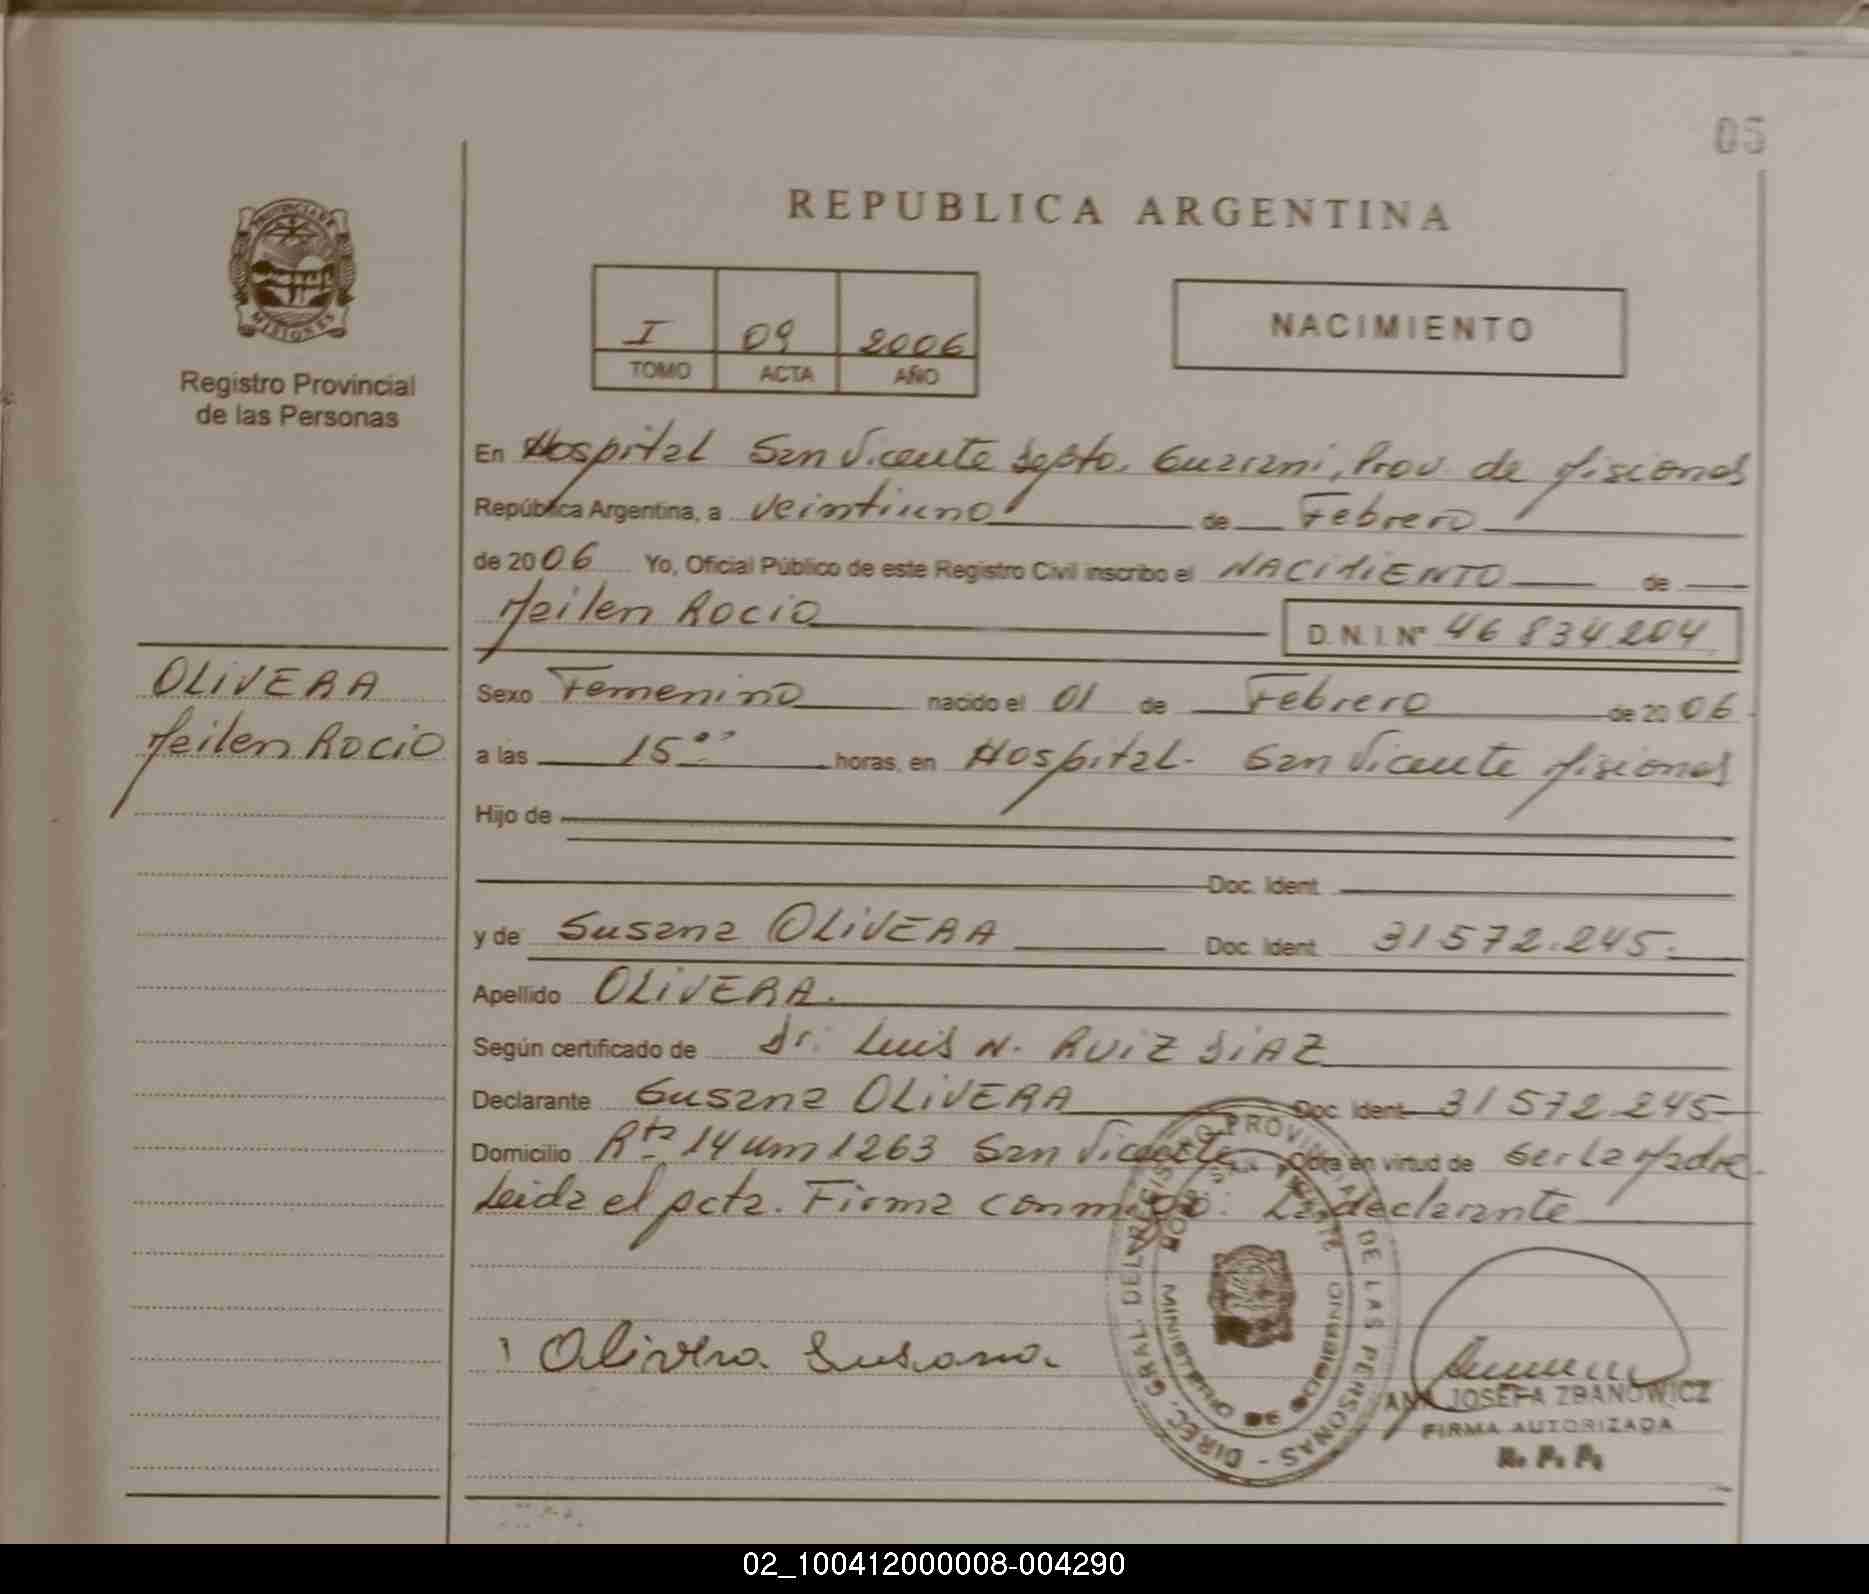 05
REPUBLICA ARGENTINA
PROVINCIA DE
MISIONES
Registro Provincial
de las Personas
I 09 2006
TOMO ACTA AÑO
NACIMIENTO
En Hospital San Vicente Depto. Guarani, Prov. de Misiones
República Argentina, a veintiuno de Febrero
de 2006 Yo, Oficial Público de este Registro Civil inscribo el NACIMIENTO de
Meilen Rocio D.N.I. Nº 46 834 204
OLIVERA
Meilen Rocio
Sexo Femenino nacido el 01 de Febrero de 2006
a las 15 horas, en Hospital. San Vicente Misiones
Hijo de
Doc. Ident.
y de Susana OLIVERA Doc. Ident. 31 572.245.
Apellido OLIVERA.
Según certificado de Dr. Luis N. RUIZ DIAZ
Declarante Susana OLIVERA Doc. Ident. 31 572 245
Domicilio Rta 14 um 1263 San Vicente Obra en virtud de ser la Madre.
Leida el acta. Firma conmigo: La declarante
Olivera Susana
DIREC. GRAL. DEL REGISTRO PROVINCIAL DE LAS PERSONAS -
MINISTERIO DE GOBIERNO
ANA JOSEFA ZBANOWICZ
FIRMA AUTORIZADA
R. P. P.
02_100412000008-004290